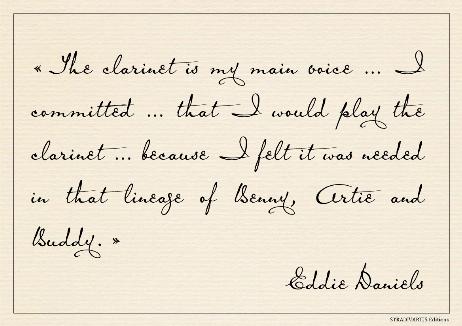 « The clarinet is my main voice ... I
committed ... that I would play the
clarinet ... because I felt it was needed
in that lineage of Benny, Artie and
Buddy. »
Eddie Daniels
STRADIVARIUS Editions